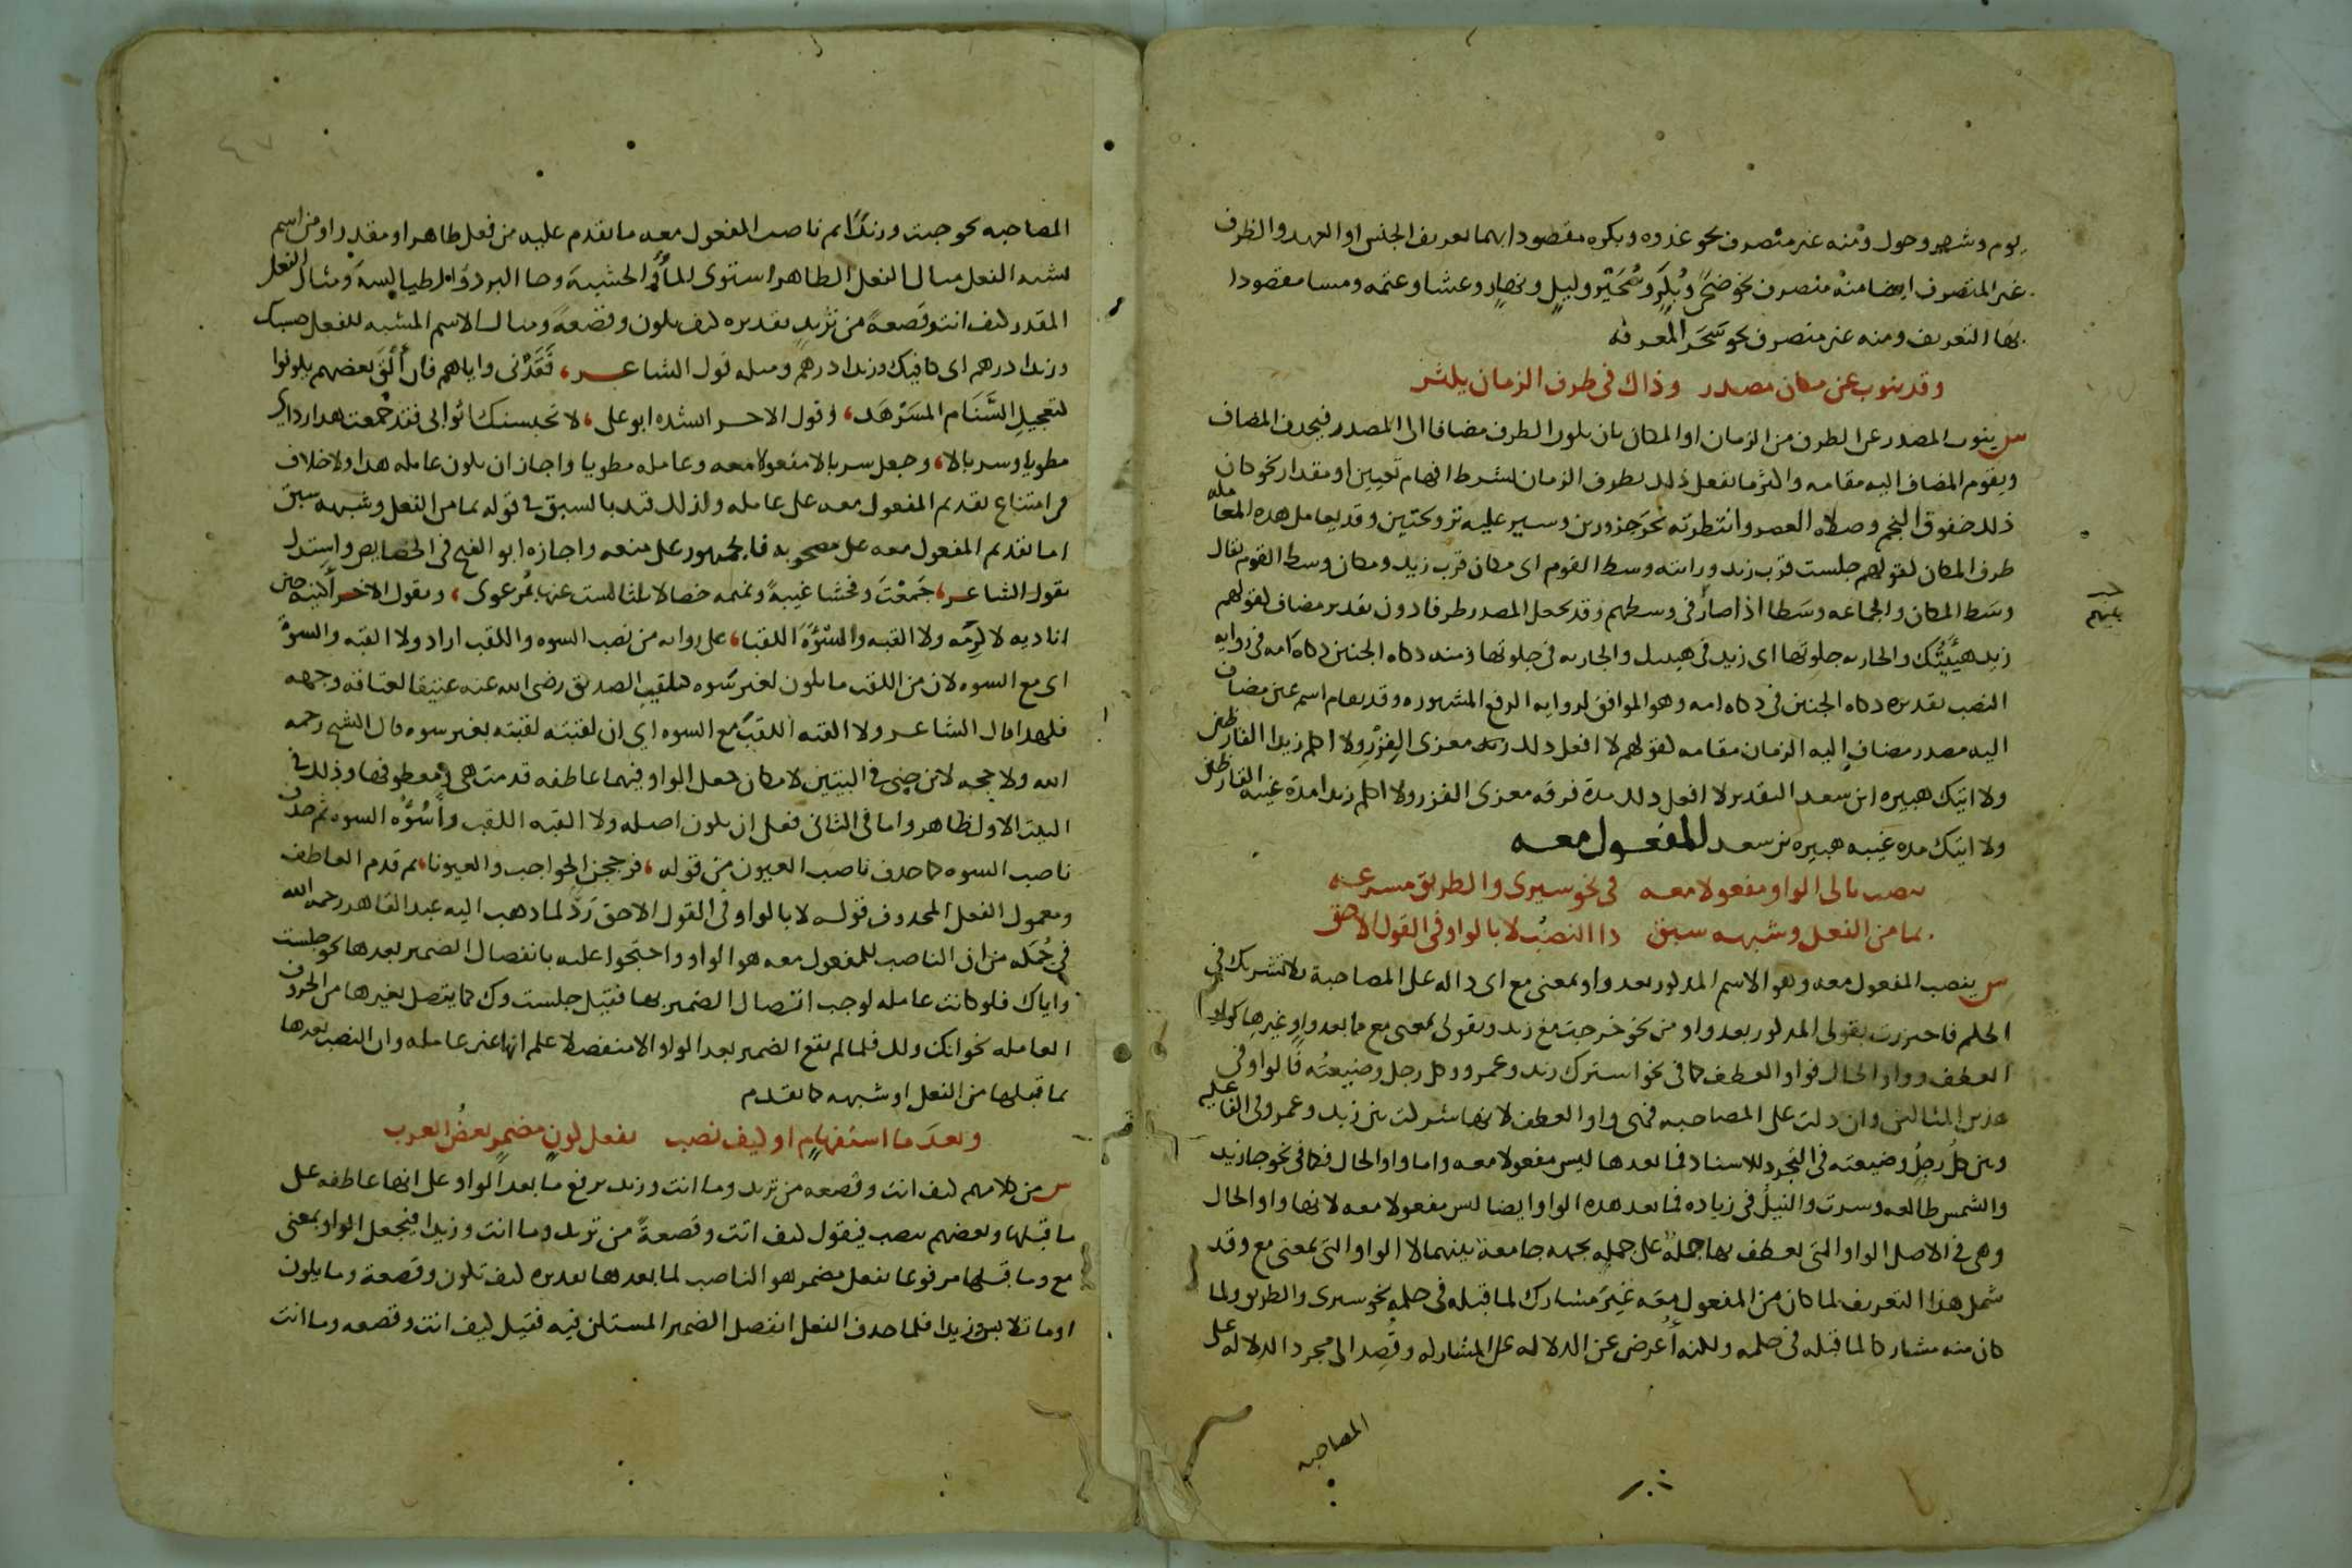 يوم وشهر وحول ومنه غير متصرف نحو غدوه وبكره مقصودا بهما تعريف الجنس او العهد والظرف
غير المتصرف ايضا منه منصرف نحو ضحى وبكر وسحير وليل ونهار وعشا وعتمه ومسا مقصودا
بها التعريف ومنه غير منصرف نحو سحر المعرفه
وقد ينوب عن مكان مصدر وذاك في ظرف الزمان يكثر
س ينوب المصدر عن الظرف من الزمان او المكان بان يكون الظرف مضافا الى المصدر فيحذف المضاف
ويقوم المضاف اليه مقامه واكثر ما يفعل ذلك بظرف الزمان بشرط افهام تعيين او مقدار نحو كان
ذلك خفوق النجم وصلاه العصر وانتظرته نحر جزورين وسير عليه ترويحتين وقد يعامل هذه المعامله
ظرف المكان كقولهم جلست قرب زيد ورايته وسط القوم اى مكان قرب زيد ومكان وسط القوم يقال
وسط المكان والجماعه وسطا اذا صار في وسطهم وقد يجعل المصدر ظرفا دون تقدير مضاف كقولهم
زيد هيئتك والجاريه جلوتها اى زيد في هيئتك والجاريه في جلوتها ومنه ذكاه الجنين ذكاه امه في روايه
النصب تقديره ذكاه الجنين في ذكاه امه وهو الموافق لروايه الرفع المشهوره وقد يقام اسم عين مضاف
اليه مصدر مضاف اليه الزمان مقامه كقولهم لا افعل ذلك معزى الفزر ولا اكلم زيدا القارظين
ولا اتيك هبيره ابن سعد التقدير لا افعل ذلك مدة فرقه معزى الفزر ولا اكلم زيدا مدة غيبه القارظين
ولا اتيك مده غيبه هبيره بن سعد المفعول معه
ينصب تالى الواو مفعولا معه في نحو سيرى والطريق مسرعه
بما من الفعل وشبهه سبق ذا النصب لا بالواو في القول الاحق
س ينصب المفعول معه وهو الاسم المذكور بعد واو بمعنى مع اى داله على المصاحبة بلا تشريك في
الحكم فاحترزت بقولى المذكور بعد واو من نحو خرجت مع زيد وبقولى بمعنى مع مما بعد واو غيرها كواو
العطف وواو الحال فواو العطف كما في نحو اشترك زيد وعمرو وكل رجل وضيعته فالواو في
هذين المثالين وان دلت على المصاحبه فهى واو العطف لانها شركت بين زيد وعمرو في الفاعليه
وبين كل رجل وضيعته في التجرد للاسناد فما بعدها ليس مفعولا معه واما واو الحال فكما في نحو جا زيد
والشمس طالعه وسرت والنيل في زياده فما بعد هذه الواو ايضا ليس مفعولا معه لانها واو الحال
وهى في الاصل الواو التى يعطف بها جملة على جملة بجهه جامعة بينهما لا الواو التى بمعنى مع وقد
شمل هذا التعريف لما كان من المفعول معه غير مشارك لما قبله في حكمه نحو سيرى والطريق ولما
كان منه مشاركا لما قبله في حكمه ولكنه أعرض عن الدلاله على المشاركه وقصد الى مجرد الدلاله على
المصاحبه
المصاحبه نحو جيت وزيدا ثم ناصب المفعول معه ما تقدم عليه من فعل ظاهر او مقدر او من اسم
يشبه الفعل مثال الفعل الظاهر استوى الماء والخشبة وجا البرد والطيالسة ومثال الفعل
المقدر كيف انت وقصعة من ثريد تقديره كيف تكون وقصعة ومثال الاسم المشبه للفعل حسبك
وزيدا درهم اى كافيك وزيدا درهم ومثله قول الشاعر، فقدنى واياهم فان ألق بعضهم يكونوا
كتعجيل السنام المسرهد، وقول الاخر انشده ابو على، لا تحبسنك اثوابى فقد جمعت هذا ردائى
مطويا وسربالا، وجعل سربالا مفعولا معه وعامله مطويا واجاز ان يكون عامله هذا ولا خلاف
في امتناع تقديم المفعول معه على عامله ولذلك قيد بالسبق في قوله بما من الفعل وشبهه سبق
اما تقديم المفعول معه على مصحوبه فالجمهور على منعه واجازه ابو الفتح في الخصايص واستدل
بقول الشاعر، جمعت وفحشا غيبة ونميمه خصالا ثلثا لست عنها بمرعوى، وبقول الاخر أكنيه حين
اناديه لاكرمه ولا القبه والسوءة اللقبا، على روايه من نصب السوه واللقب اراد ولا القبه والسوة
اى مع السوه لان من اللقب ما يكون لغير سوه كتلقيب الصديق رضى الله عنه عتيقا لعتاقه وجهه
فلهذا قال الشاعر ولا القبه اللقب مع السوه اى ان لقبته لقبته بغير سوه قال الشيخ رحمه
الله ولا حجه لابن جنى في البيتين لامكان جعل الواو فيهما عاطفه قدمت هى ومعطوفها وذلك في
البيت الاول ظاهر واما في الثانى فعلى ان يكون اصله ولا القبه اللقب وأسوءه السوه ثم حذف
ناصب السوه كما حذف ناصب العيون من قوله، فزججن الحواجب والعيونا، ثم قدم العاطف
ومعمول الفعل المحذوف قوله لا بالواو في القول الاحق رد لما ذهب اليه عبد القاهر رحمه الله
في جمله من ان الناصب للمفعول معه هو الواو واحتجوا عليه بانفصال الضمير بعدها نحو جلست
واياك فلو كانت عامله لوجب اتصال الضمير بها فقيل جلست وك كما يتصل بغيرها من الحروف
العامله نحو انك ولك فلما لم يقع الضمير بعد الواو الا منفصلا علم انها غير عامله وان النصب بعدها
بما قبلها من الفعل او شبهه كما تقدم
وبعد ما استفهام او كيف نصب بفعل كون مضمر بعض العرب
س من كلامهم كيف انت وقصعه من ثريد وما انت وزيد برفع ما بعد الواو على انها عاطفه على
ما قبلها وبعضهم ينصب فيقول كيف انت وقصعة من ثريد وما انت وزيدا فيجعل الواو بمعنى
مع وما قبلها مرفوعا بفعل مضمر هو الناصب لما بعدها تقديره كيف تكون وقصعة وما يكون
او ما تلابس وزيدا فلما حذف الفعل انفصل الضمير المستكن فيه فقيل كيف انت وقصعه وما انت